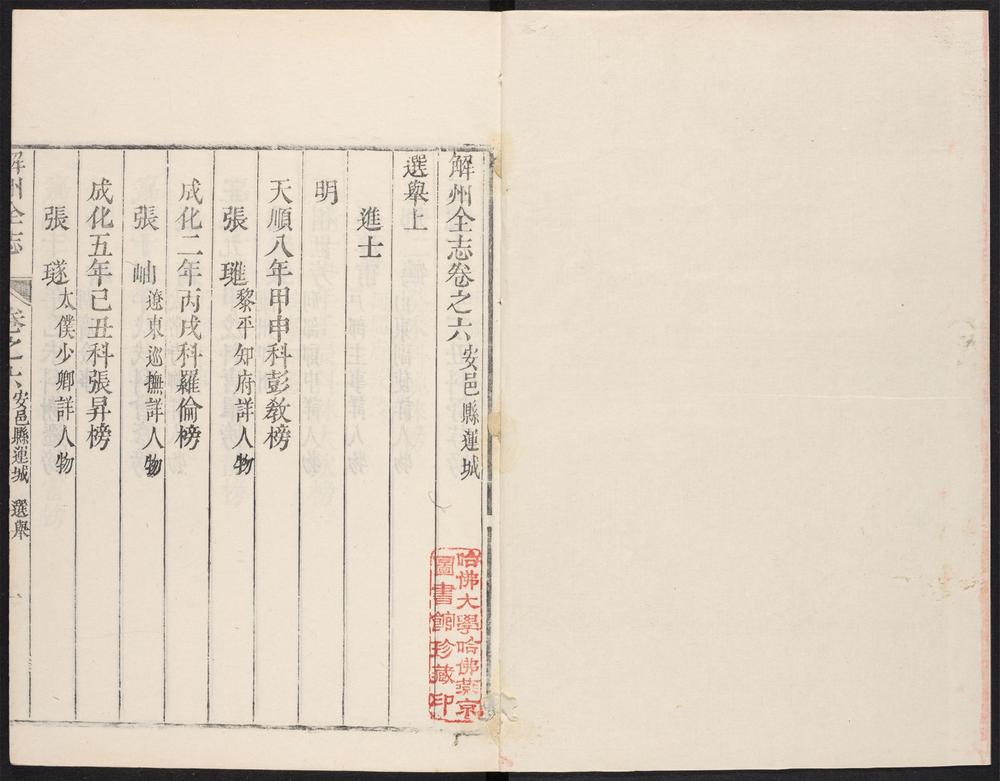 解州全志卷之六 安邑縣運城
選舉上
進士
明
天順八年甲申科彭教榜
張璡 黎平知府詳人物
成化二年丙戌科羅倫榜
張岫 遼東巡撫詳人物
成化五年己丑科張昇榜
張璲 太僕少卿詳人物
解州全志 卷之六 安邑縣運城 選舉 一
哈佛大學哈佛燕京
圖書館珍藏印